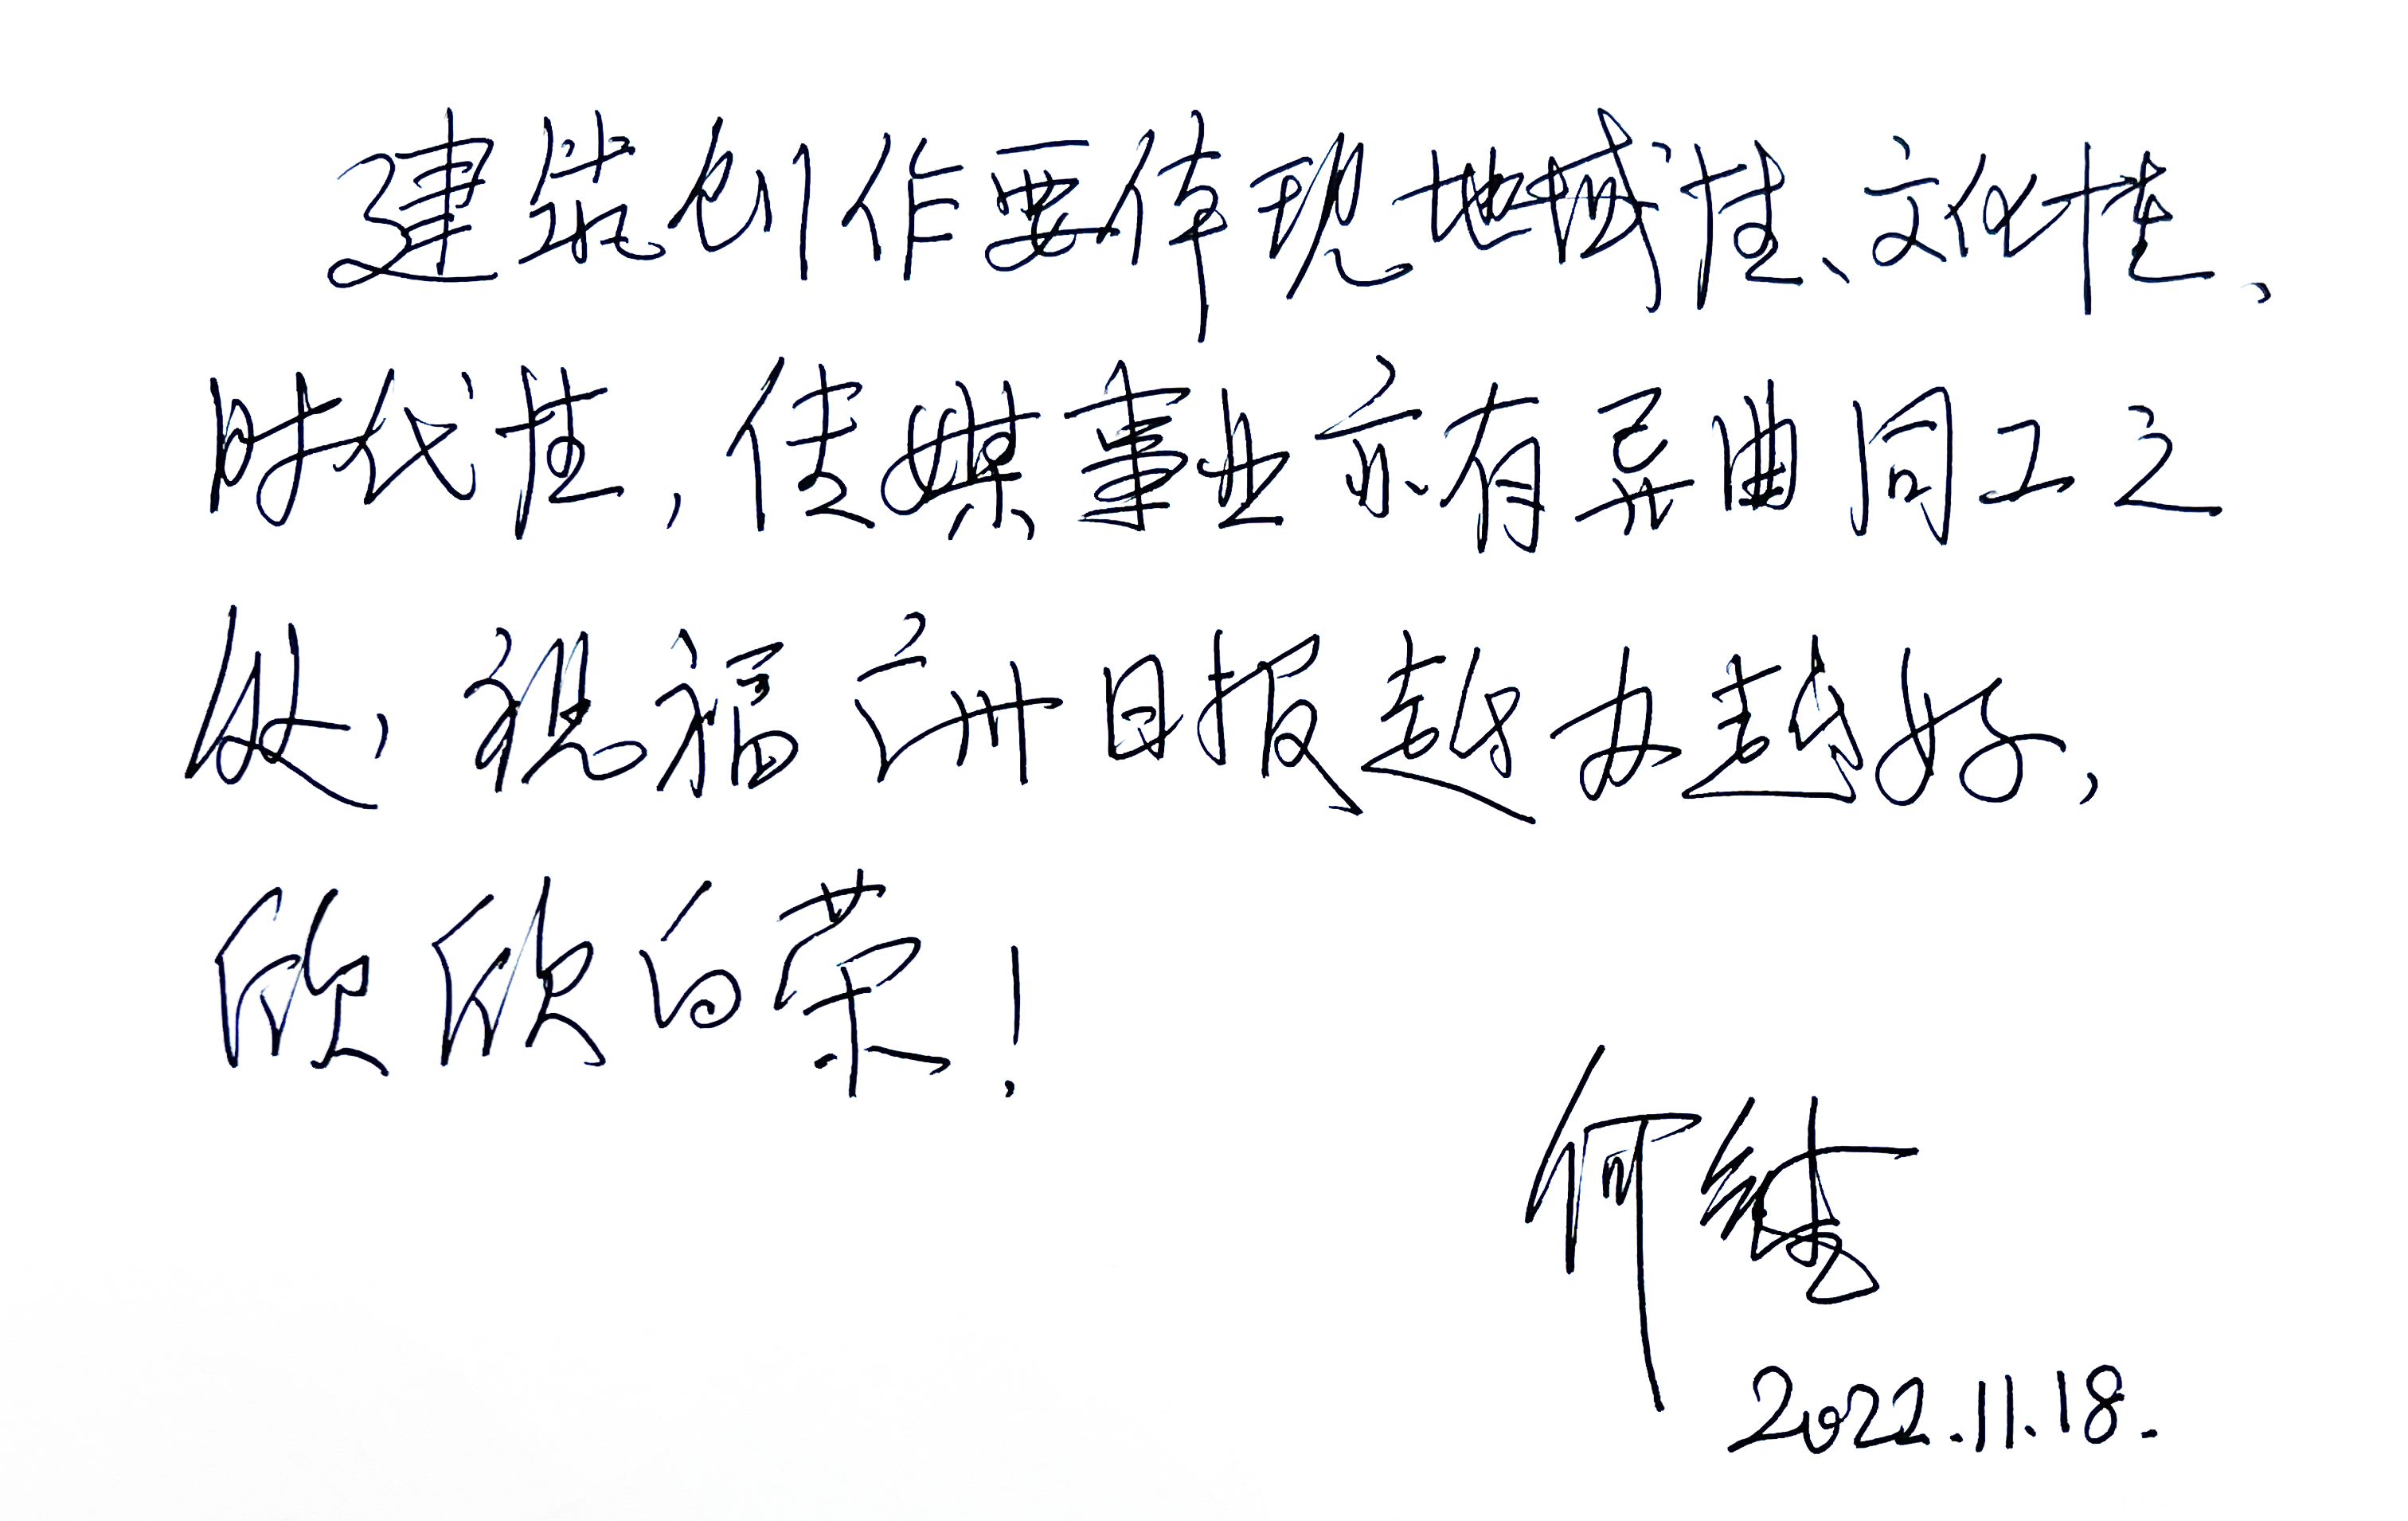 建筑创作要体现地域性、文化性、
时代性，传媒事业亦有异曲同工之
处，祝福广州日报越办越好，
欣欣向荣！
何镜
2022.11.18.